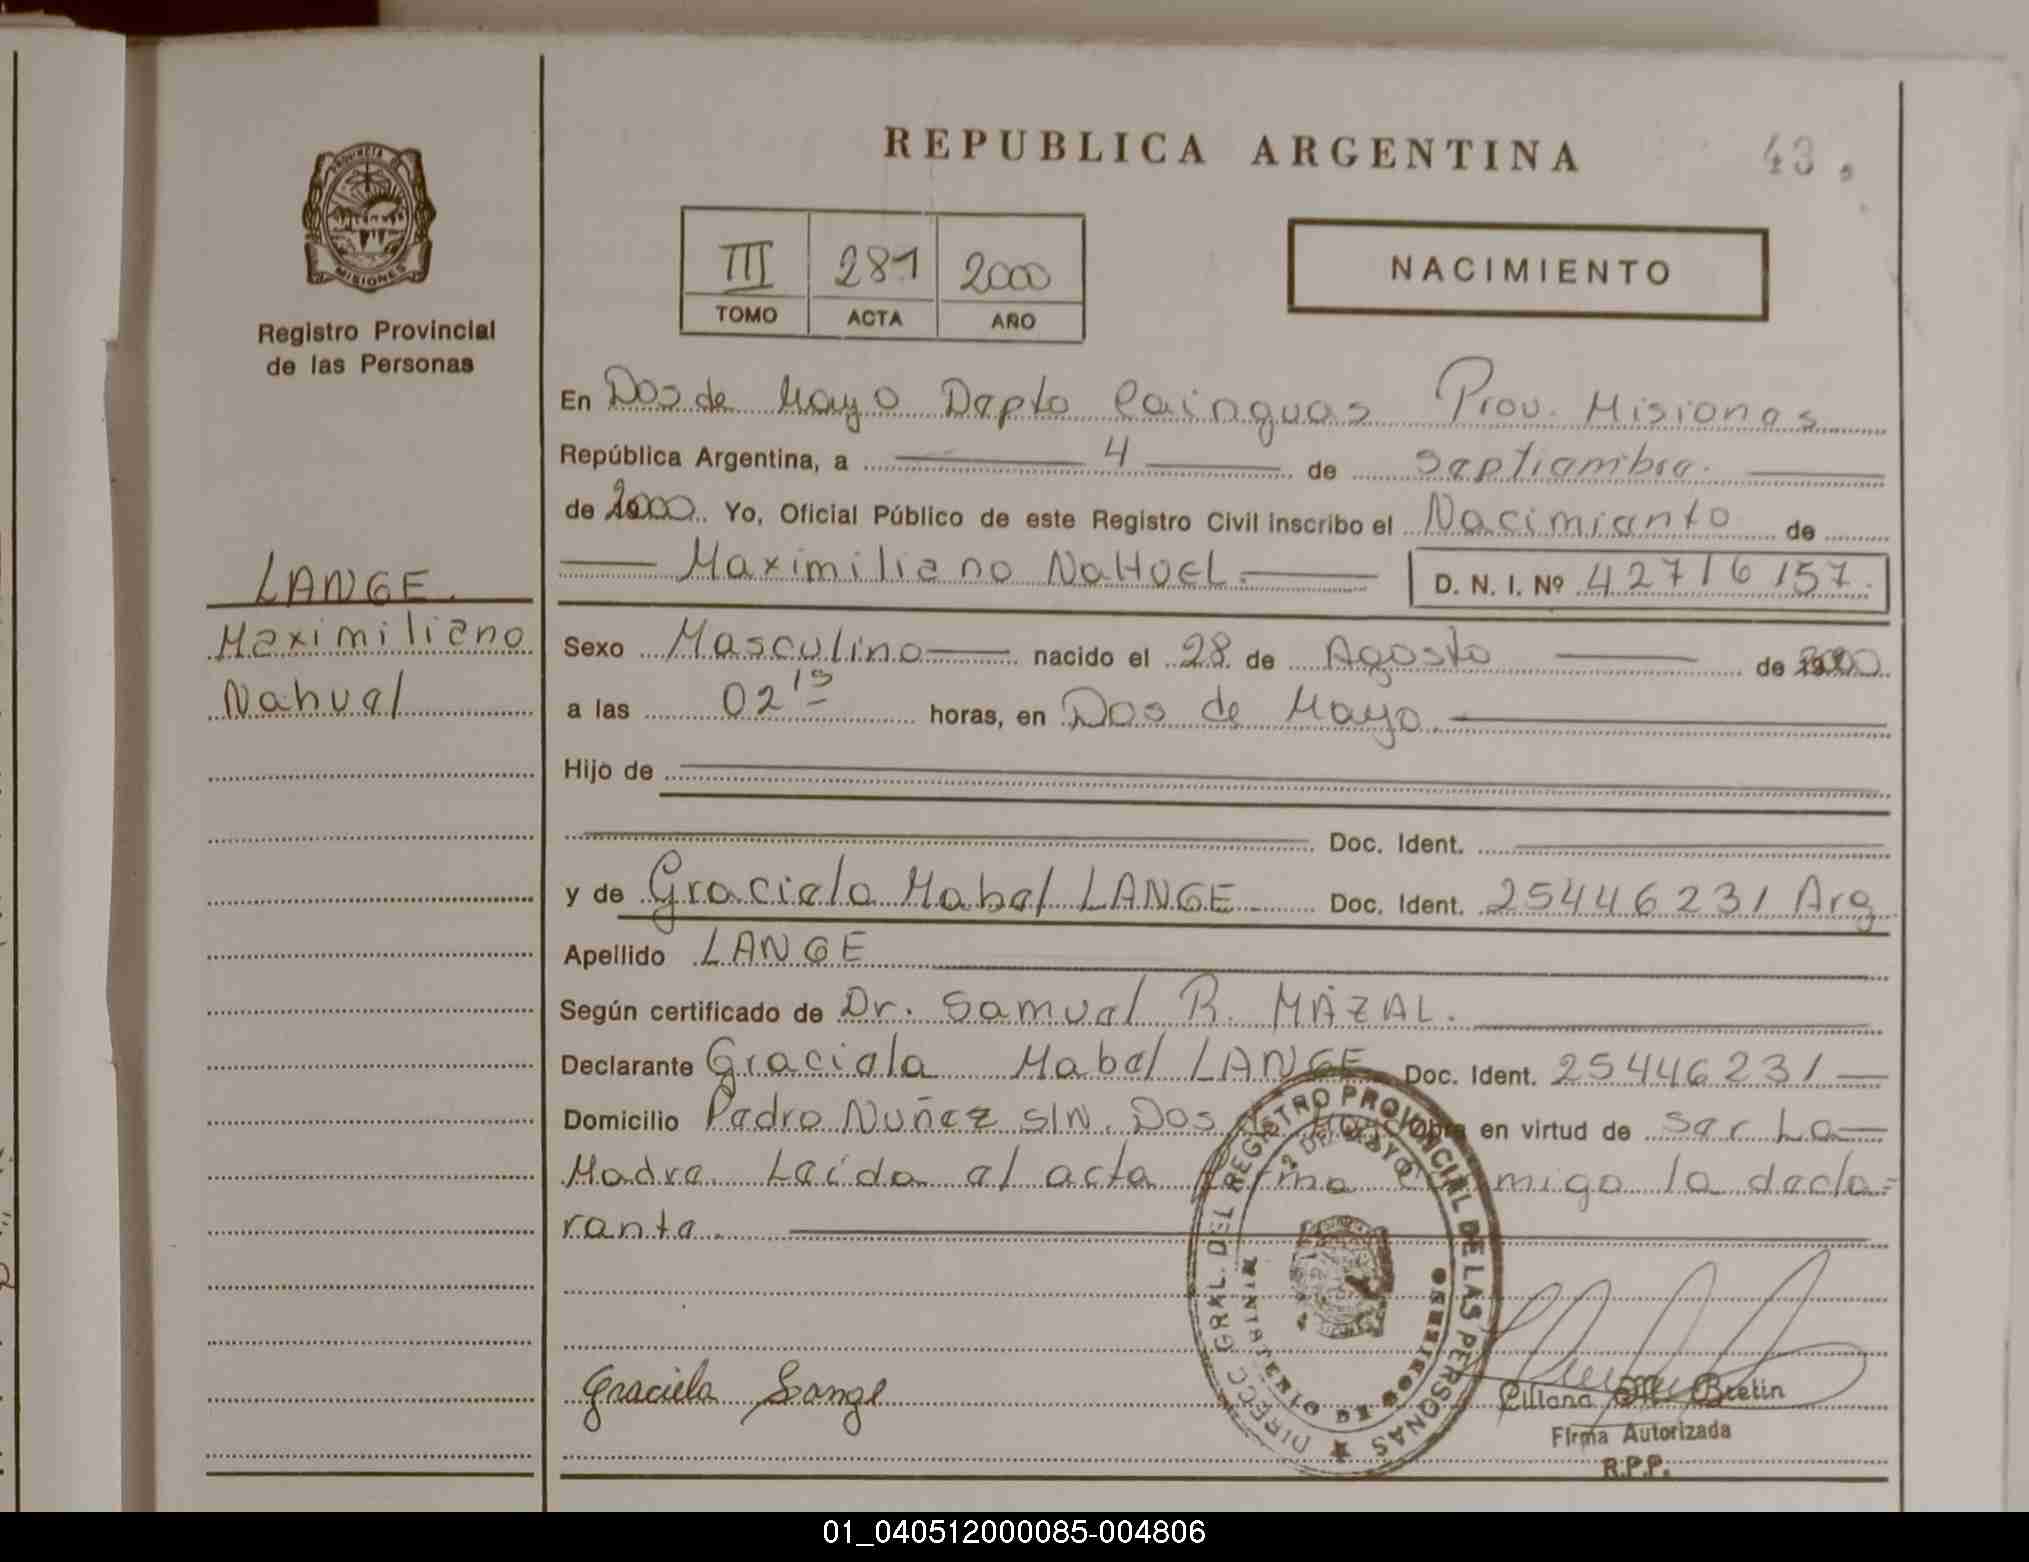 REPUBLICA ARGENTINA
43.
PROVINCIA DE
MISIONES
Registro Provincial
de las Personas
III 281 2000
TOMO ACTA AÑO
NACIMIENTO
En Dos de Mayo Depto Cainguas Prov. Misiones
República Argentina, a 4 de septiembre.
de 2000 Yo, Oficial Público de este Registro Civil inscribo el Nacimiento de
Maximiliano NaHuEL. D. N. I. Nº 42716157.
LANGE.
Maximiliano
Nahuel
Sexo Masculino nacido el 28 de Agosto de 2000
a las 02 15 horas, en Dos de Mayo.
Hijo de
Doc. Ident.
y de Graciela Mabel LANGE Doc. Ident. 25446231 Arg
Apellido LANGE
Según certificado de Dr. Samuel R. MAZAL.
Declarante Graciela Mabel LANGE Doc. Ident. 25446231
Domicilio Pedro Nuñez S/N. Dos de Mayo Obra en virtud de ser La
Madre Leída el acta firma conmigo la decla=
rante.
DIRECC. GRAL. DEL REGISTRO PROVINCIAL DE LAS PERSONAS
2 DE MAYO
MINISTERIO DE GOBIERNO
Graciela Lange
Liliana M. Bretin
Firma Autorizada
R.P.P.
01_040512000085-004806